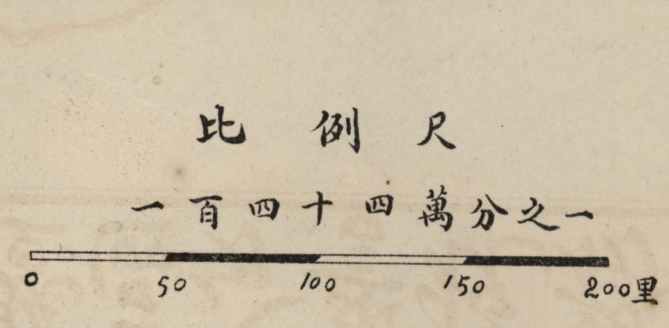 比例尺
一百四十四萬分之一
0 50 100 150 200里